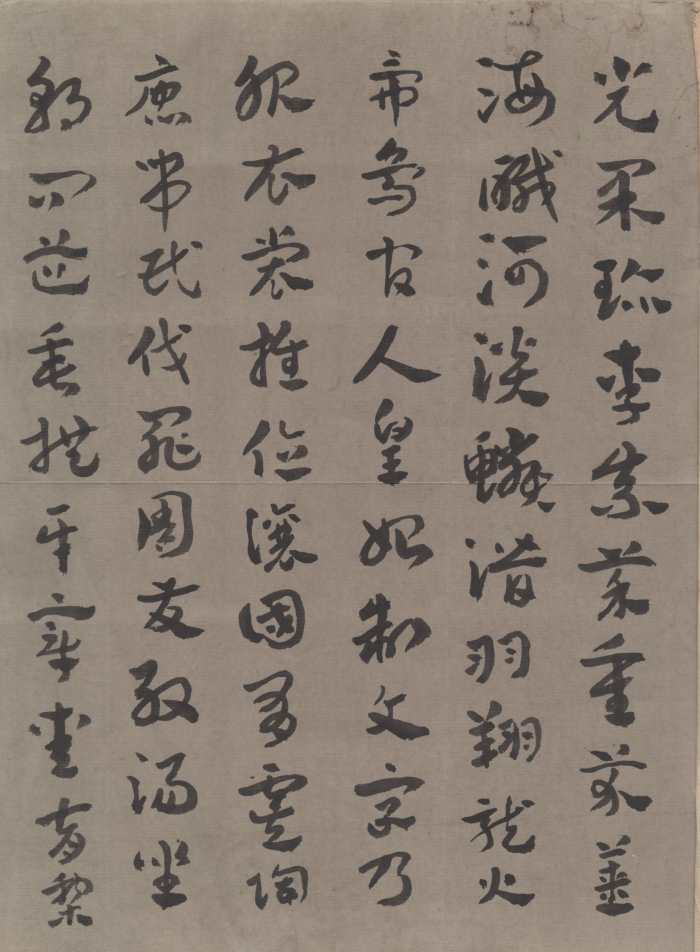 光果珍李柰菜重芥薑
海鹹河淡鱗潛羽翔龍火
帝鳥官人皇始制文字乃
服衣裳推位讓國有虞陶
唐弔民伐罪周發殷湯坐
朝問道垂拱平章愛育黎